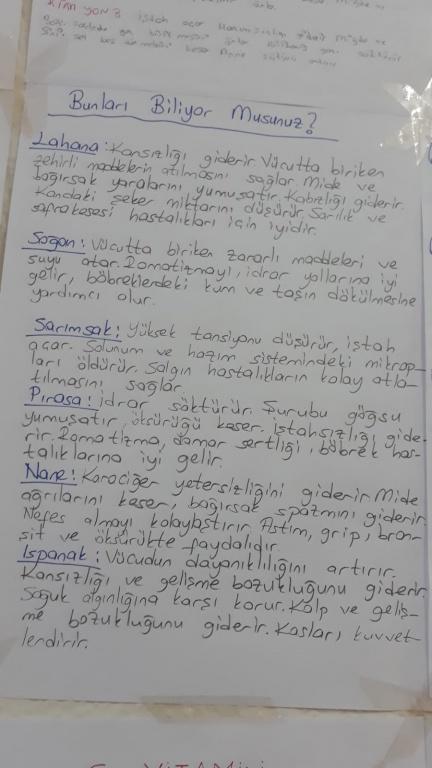 istah acar
Bunları Biliyor Musunuz?
Lahana: Kansızlığı giderir. Vücutta biriken
zehirli maddelerin atılmasını sağlar. Mide ve
bağırsak yaralarını yumuşatır. Kabızlığı giderir.
Kandaki şeker miktarını düşürür. Sarılık ve
safrakesesi hastalıkları için iyidir.
Soğan: Vücutta biriken zararlı maddeleri ve
suyu atar. Romatizmayı, idrar yollarına iyi
gelir, böbreklerdeki kum ve taşın dökülmesine
yardımcı olur.
Sarımsak: Yüksek tansiyonu düşürür, iştah
açar. Solunum ve hazım sistemindeki mikrop-
ları öldürür. Salgın hastalıkların kolay atla-
tılmasını sağlar.
Pırasa: idrar söktürür. Şurubu göğsu
yumuşatır, öksürüğü keser. iştahsızlığı gide-
rir. Romatizma, damar sertliği, böbrek has-
talıklarına iyi gelir.
Nane: Karaciğer yetersizliğini giderir. Mide
ağrılarını keser, bağırsak spazmını giderir.
Nefes almayı kolaylaştırır. Astım, grip, bron-
şit ve öksürükte faydalıdır.
Ispanak: Vücudun dayanıklılığını artırır.
Kansızlığı ve gelişme bozukluğunu giderir.
Soğuk algınlığına karşı korur. Kalp ve geliş-
me bozukluğunu giderir. Kasları kuvvet-
lendirir.